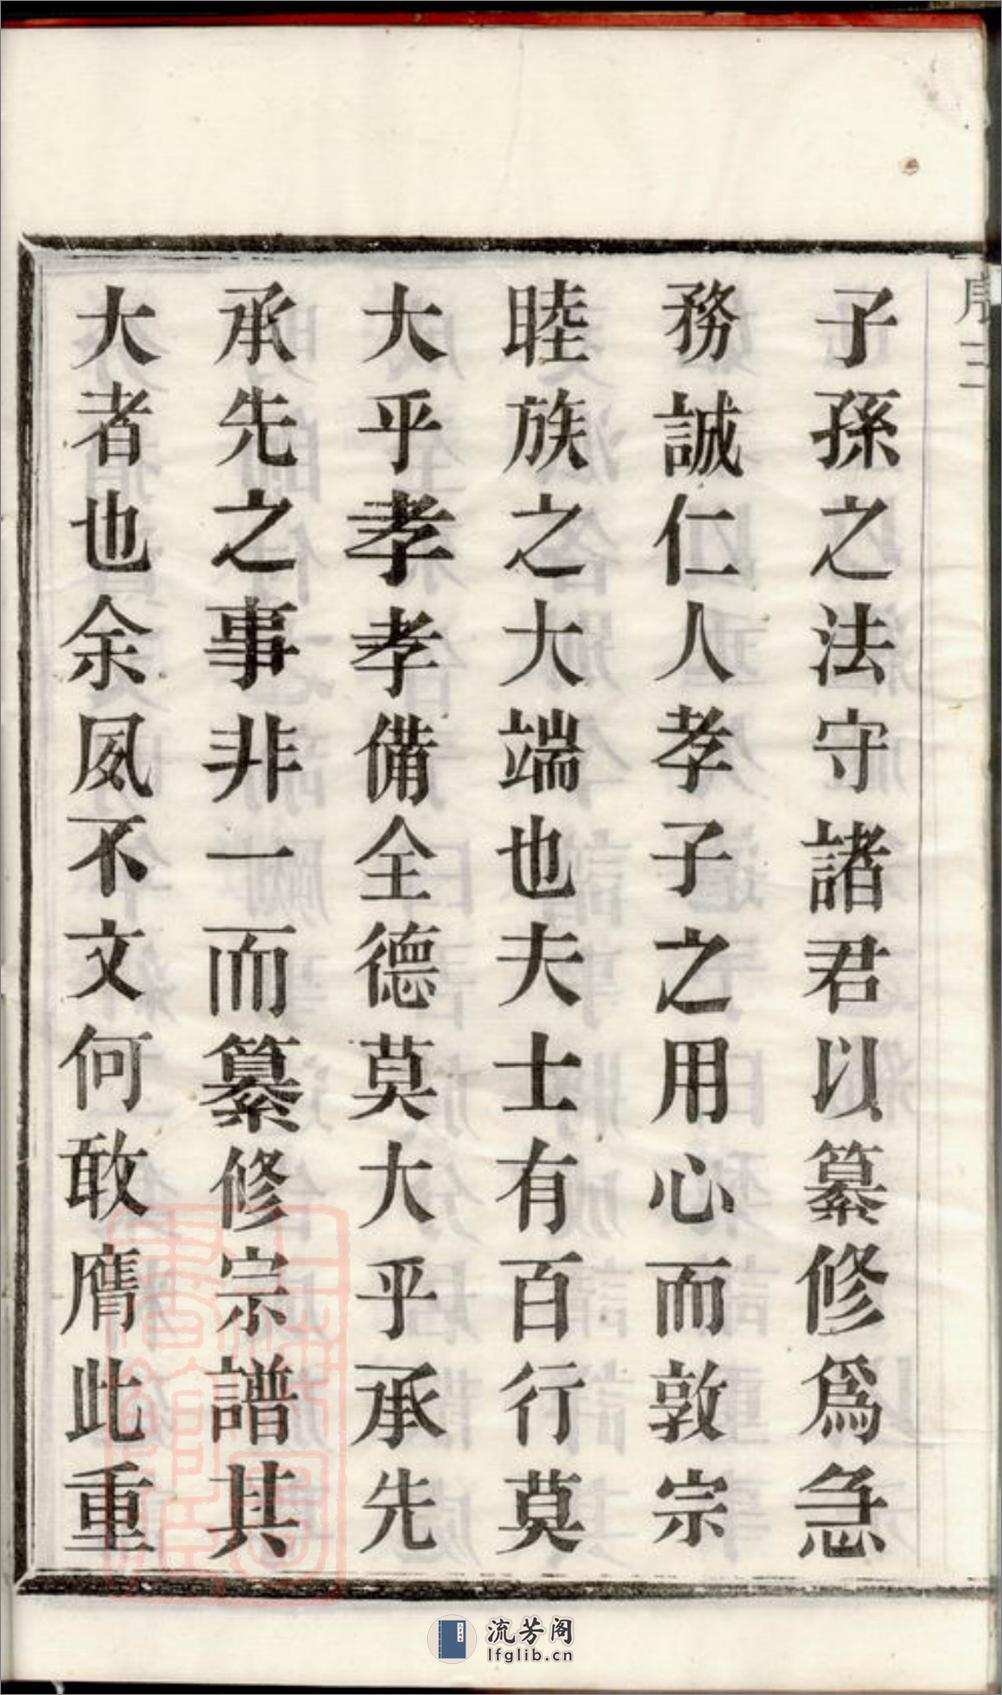 序三
子孫之法守諸君以纂修爲急
務誠仁人孝子之用心而敦宗
睦族之大端也夫士有百行莫
大乎孝孝備全德莫大乎承先
承先之事非一而纂修宗譜其
大者也余夙不文何敢膺此重
流芳阁
lfglib.cn